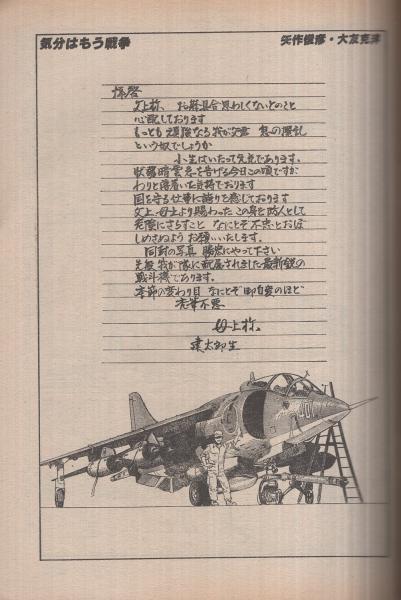 気分はもう戦争
矢作俊彦・大友克洋
拝啓
父上様、お躰具合思わしくないとのこと
心配しております
もっとも頑強なる我が父 鬼の霍乱
という奴でしょうか
小生はいたって元気であります。
状勢暗雲急を告げる今日この頃ですが
わりと落着いた気持でおります
国を守る仕事に誇りを感じております
父上、母上より賜わった この身を防人として
危険にさらすこと なにとぞ不忠とおぼ
しめさぬよう お願いいたします。
同封の写真 にやって下さい
先般 我が隊に配属されました最新鋭の
戦斗機であります。
季節の変わり目 なにとぞ御自愛のほど
乱筆不悪
母上様。
建太郎生